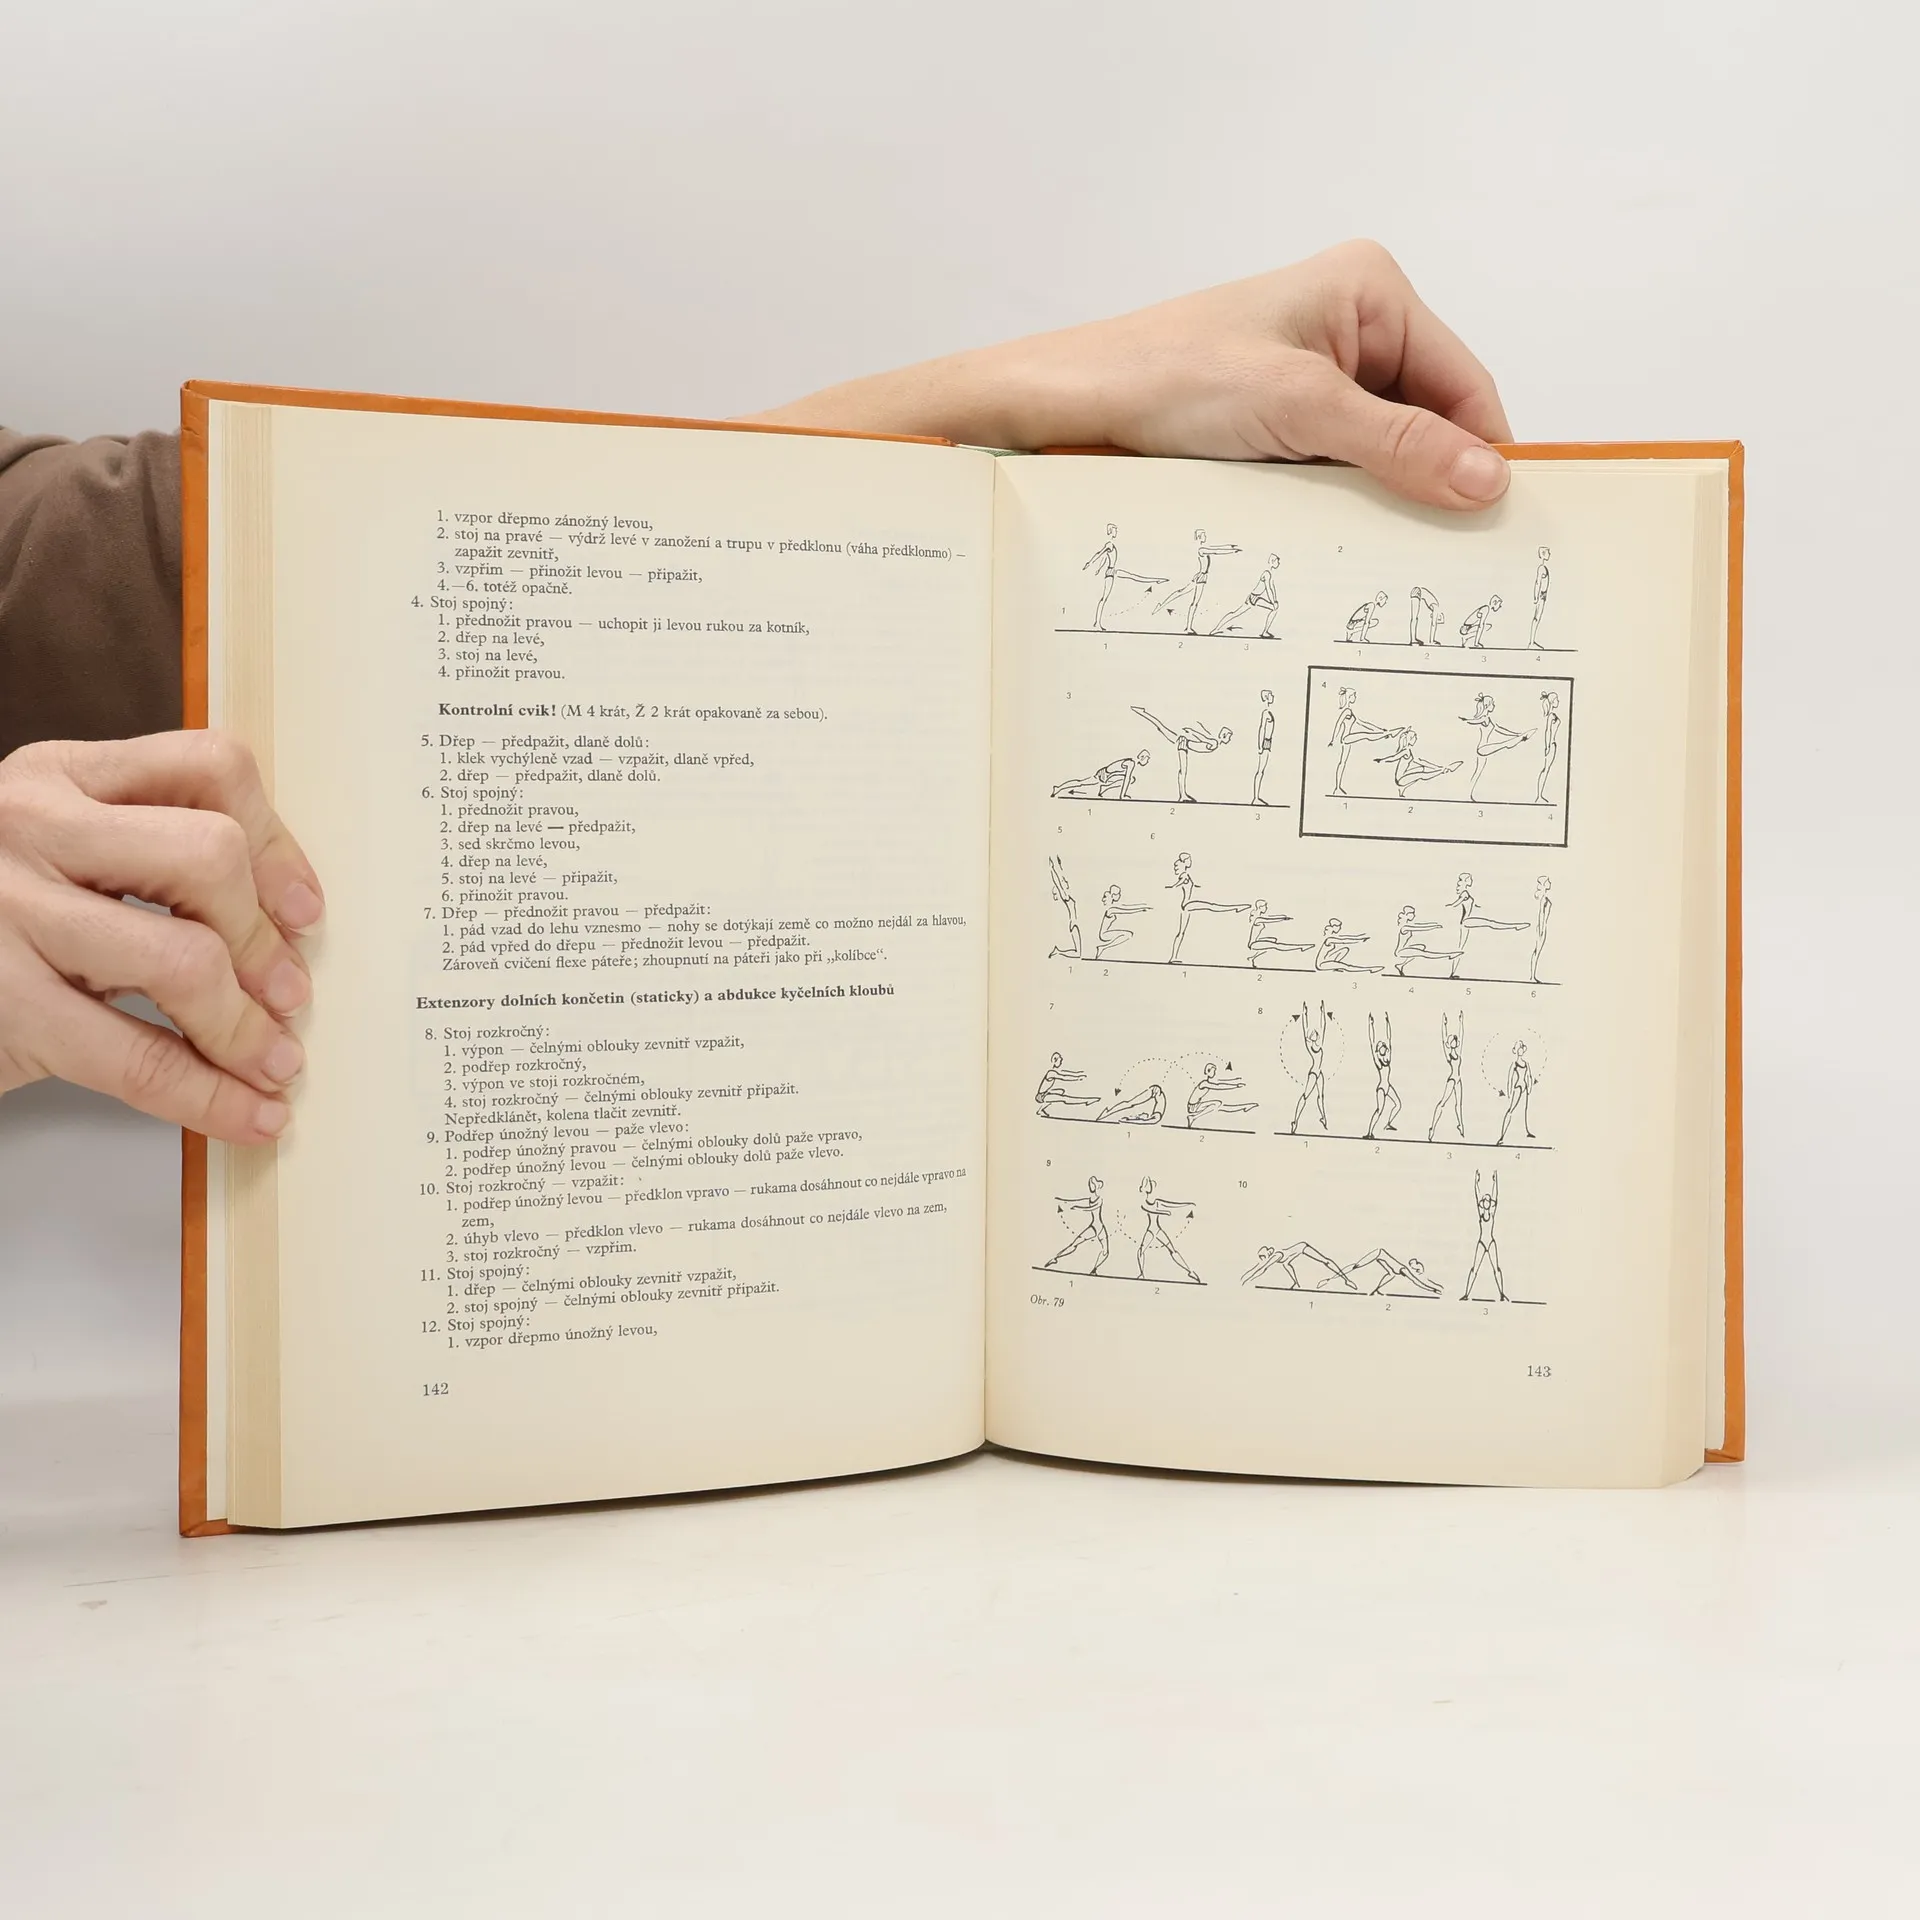 1. vzpor dřepmo zánožný levou,
2. stoj na pravé — výdrž levé v zanožení a trupu v předklonu (váha předklonmo) —
zapažit zevnitř,
3. vzpřim — přinožit levou — připažit,
4.—6. totéž opačně.
4. Stoj spojný:
1. přednožit pravou — uchopit ji levou rukou za kotník,
2. dřep na levé,
3. stoj na levé,
4. přinožit pravou.
Kontrolní cvik! (M 4 krát, Ž 2 krát opakovaně za sebou).
5. Dřep — předpažit, dlaně dolů:
1. klek vychýleně vzad — vzpažit, dlaně vpřed,
2. dřep — předpažit, dlaně dolů.
6. Stoj spojný:
1. přednožit pravou,
2. dřep na levé — předpažit,
3. sed skrčmo levou,
4. dřep na levé,
5. stoj na levé — připažit,
6. přinožit pravou.
7. Dřep — přednožit pravou — předpažit:
1. pád vzad do lehu vznesmo — nohy se dotýkají země co možno nejdál za hlavou,
2. pád vpřed do dřepu — přednožit levou — předpažit.
Zároveň cvičení flexe páteře; zhoupnutí na páteři jako při „kolíbce“.
Extenzory dolních končetin (staticky) a abdukce kyčelních kloubů
8. Stoj rozkročný:
1. výpon — čelnými oblouky zevnitř vzpažit,
2. podřep rozkročný,
3. výpon ve stoji rozkročném,
4. stoj rozkročný — čelnými oblouky zevnitř připažit.
Nepředklánět, kolena tlačit zevnitř.
9. Podřep únožný levou — paže vlevo:
1. podřep únožný pravou — čelnými oblouky dolů paže vpravo,
2. podřep únožný levou — čelnými oblouky dolů paže vlevo.
10. Stoj rozkročný — vzpažit:
1. podřep únožný levou — předklon vpravo — rukama dosáhnout co nejdále vpravo na
zem,
2. úhyb vlevo — předklon vlevo — rukama dosáhnout co nejdále vlevo na zem,
3. stoj rozkročný — vzpřim.
11. Stoj spojný:
1. dřep — čelnými oblouky zevnitř vzpažit,
2. stoj spojný — čelnými oblouky zevnitř připažit.
12. Stoj spojný:
1. vzpor dřepmo únožný levou,
142
1
1 2 3
2
1 2 3 4
3
1 2 3
4
1 2 3 4
5
1 2
6
1 2 3 4 5 6
7
1 2
8
1 2 3 4
9
1 2
10
1 2 3
Obr. 79
143